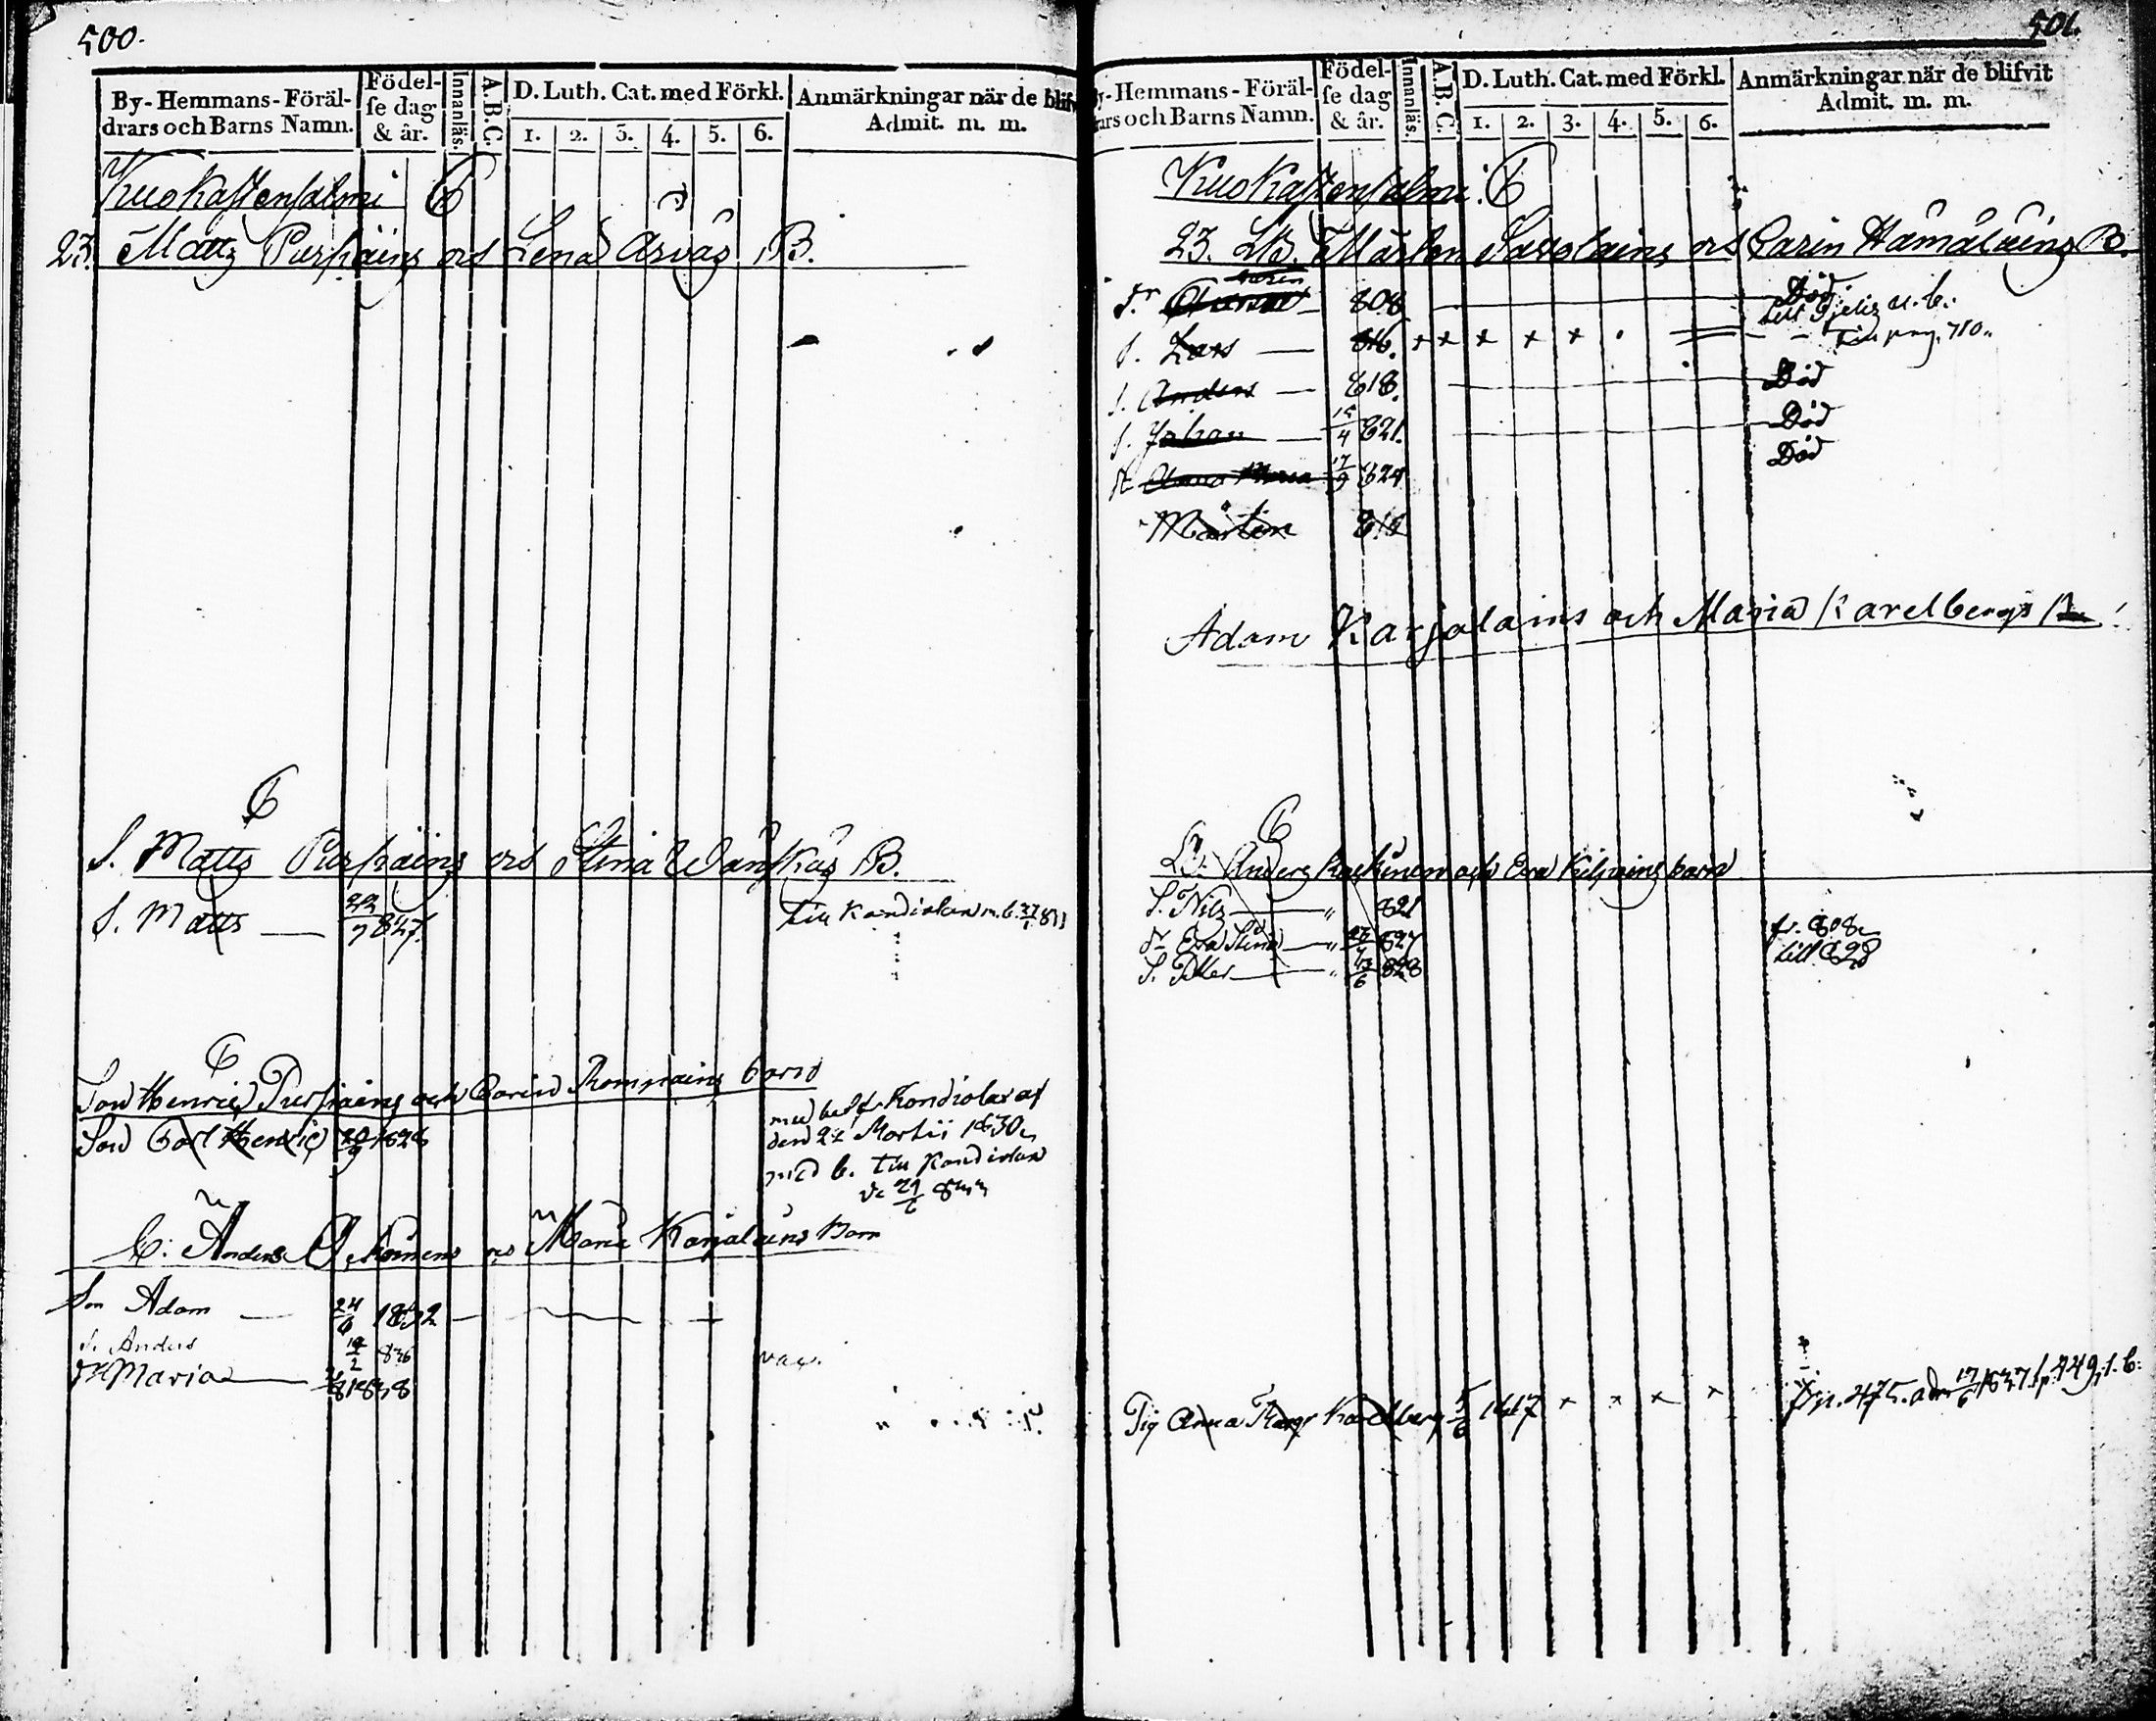 500.
By-Hemmans-Föräl-
drars och Barns Namn.
Födel-
se dag
& år.
Innanläs.
A.B.C.
D. Luth. Cat. med Förkl.
1. 2. 3. 4. 5. 6.
Anmärkningar när de blifv
Admit. m. m.
Kuokastensalmi
23. Matts Pursiains och Lena Asvas B.
S. Matts Pursiains och Stina Wanskas B.
S. Matts 22/9 827. Till Kondiolax m. b. 833
Son Henric Pursiains och Carin Romppains barn
Son Carl Henric 20/9 1828
med bet fr. Kondiolax af
den 22 Martii 1830
med b. till Kondiolax
Anders och Maria Karjalains Barn
Son Adam 24/6 1832
S. Anders 19/2 836
dr Maria 1838
501.
y-Hemmans-Föräl-
rars och Barns Namn.
Födel-
se dag
& år.
Innanläs.
A.B.C.
D. Luth. Cat. med Förkl.
1. 2. 3. 4. 5. 6.
Anmärkningar när de blifvit
Admit. m. m.
Kuokastensalmi
23. Mårten Savolains och Carin Hämäläins B.
Carin
dr 808 Död
S. Lars 816. Till pag. 710
S. Anders 818. Död
S. Johan 15/4 821. Död
dr Anna Maria 17/9 824 Död
Mårten 812
Adam Karjalains och Maria Karelbergs
Anders och Eva Kilpains barn
S. Nils 821
dr Eva Stina 827 fr. 808
S. Petter 12/6 828 till 828
Pig Anna Margr Karelberg 5/6 1817 × × × × fr p. 475. adm 17/6 1837